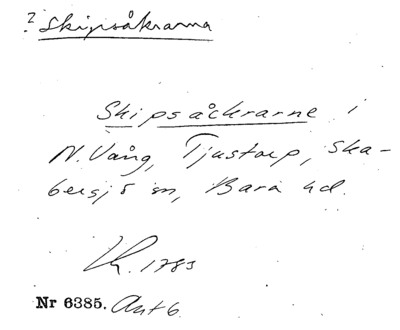 ? Skipsåkrarna
Skipsåckrarne i
N. Vång, Tjustorp, Ska-
bersjö sn, Bara hd.
Lh. 1783
Nr 6385. Akt 6